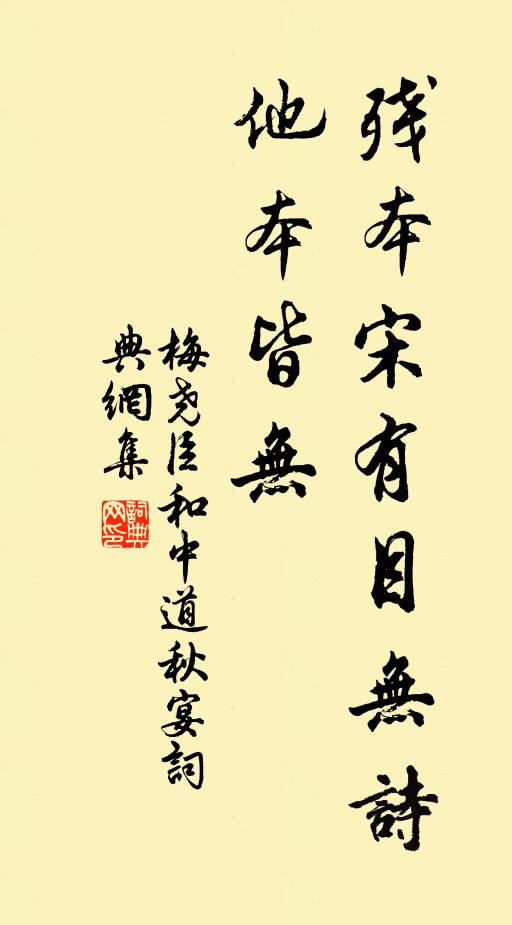 殘本宋有目無詩
他本皆無
梅堯臣和中道秋宴詞
典網集
詞典网印